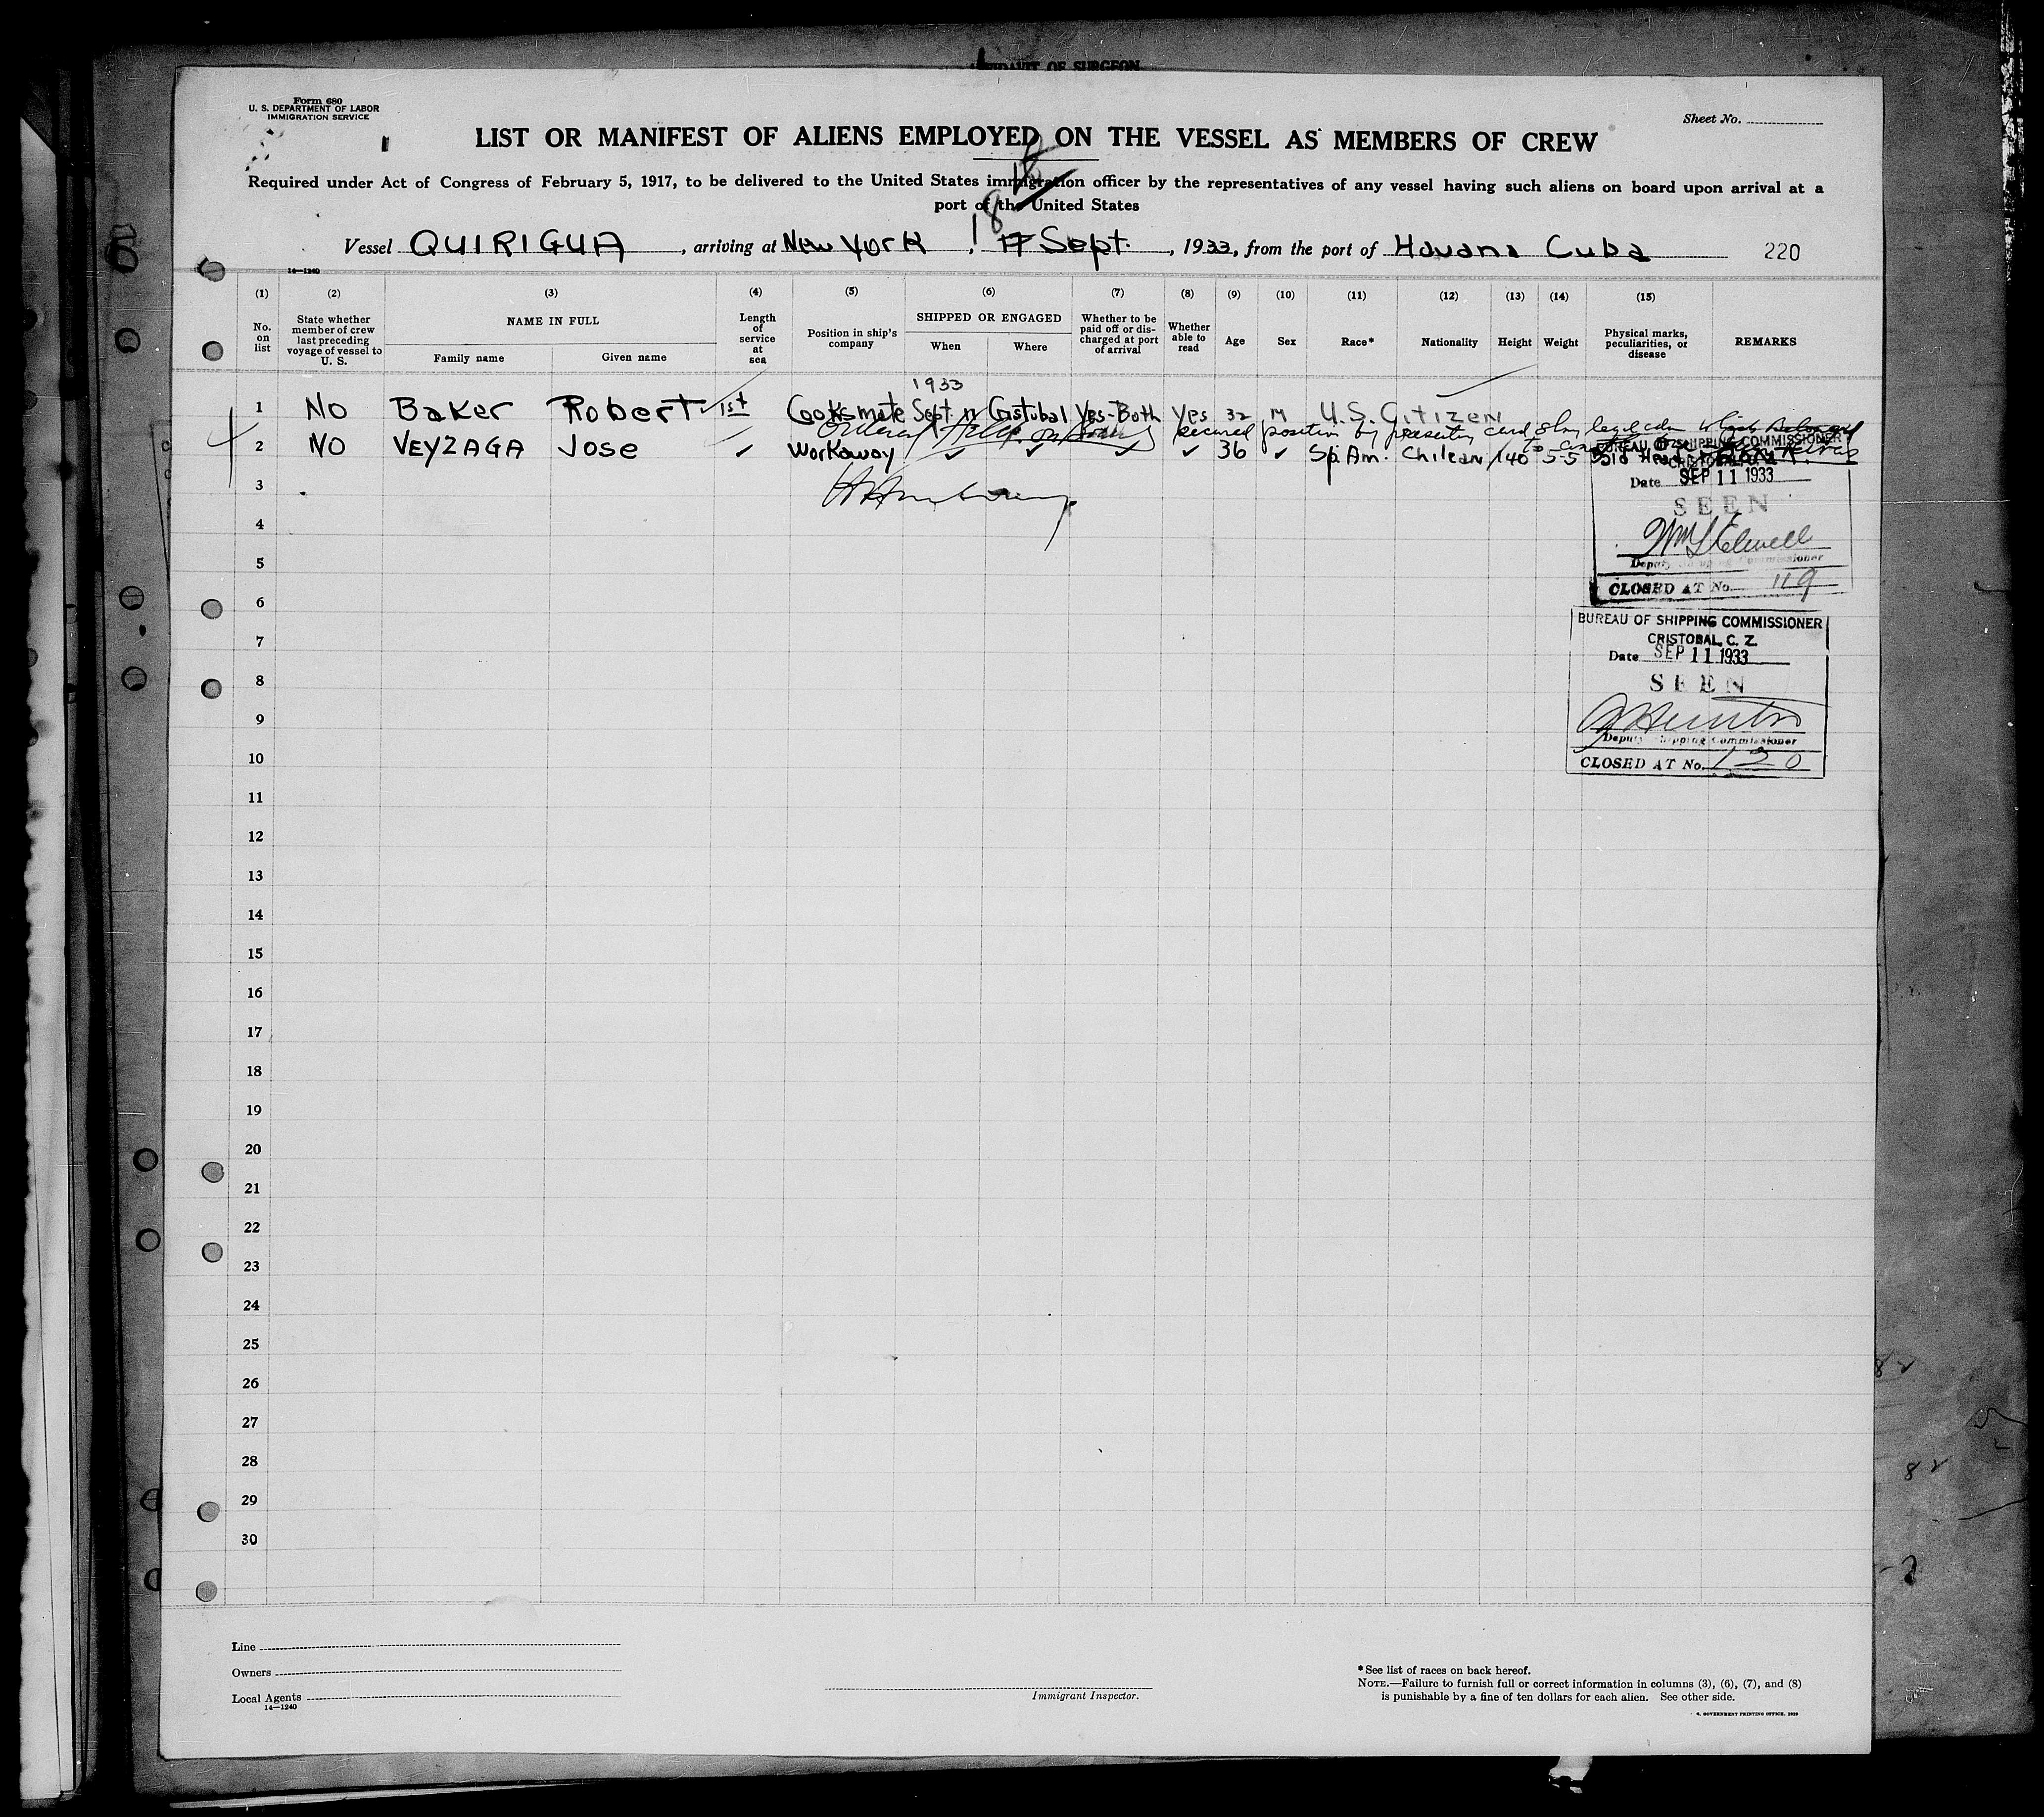 AFFIDAVIT OF SURGEON
Form 680
U. S. DEPARTMENT OF LABOR
IMMIGRATION SERVICE
Sheet No.
LIST OR MANIFEST OF ALIENS EMPLOYED ON THE VESSEL AS MEMBERS OF CREW
Required under Act of Congress of February 5, 1917, to be delivered to the United States immigration officer by the representatives of any vessel having such aliens on board upon arrival at a
port of the United States
Vessel QUIRIGUA, arriving at New York, 18 17 Sept., 1933, from the port of Havana Cuba 220
14—1240
(1) (2) (3) (4) (5) (6) (7) (8) (9) (10) (11) (12) (13) (14) (15)
No. on list State whether member of crew last preceding voyage of vessel to U. S. NAME IN FULL Family name Given name Length of service at sea Position in ship's company SHIPPED OR ENGAGED When Where Whether to be paid off or discharged at port of arrival Whether able to read Age Sex Race* Nationality Height Weight Physical marks, peculiarities, or disease REMARKS
1933
1 No Baker Robert 1st Cooks mate Sept 11 Cristobal Yes-Both Yes 32 M U.S. Citizen
secured position by presenting card
2 NO VEYZAGA Jose workaway 36 Sp. Am. Chilean 140 5-5
BUREAU OF SHIPPING COMMISSIONER
CRISTOBAL, C. Z.
Date SEP 11 1933
SEEN
Deputy Shipping Commissioner
CLOSED AT No. 119
BUREAU OF SHIPPING COMMISSIONER
CRISTOBAL, C. Z.
Date SEP 11 1933
SEEN
Deputy Shipping Commissioner
CLOSED AT No. 120
3
4
5
6
7
8
9
10
11
12
13
14
15
16
17
18
19
20
21
22
23
24
25
26
27
28
29
30
Line
Owners
Local Agents
14—1240
Immigrant Inspector.
*See list of races on back hereof.
NOTE.—Failure to furnish full or correct information in columns (3), (6), (7), and (8)
is punishable by a fine of ten dollars for each alien. See other side.
GOVERNMENT PRINTING OFFICE
82
82